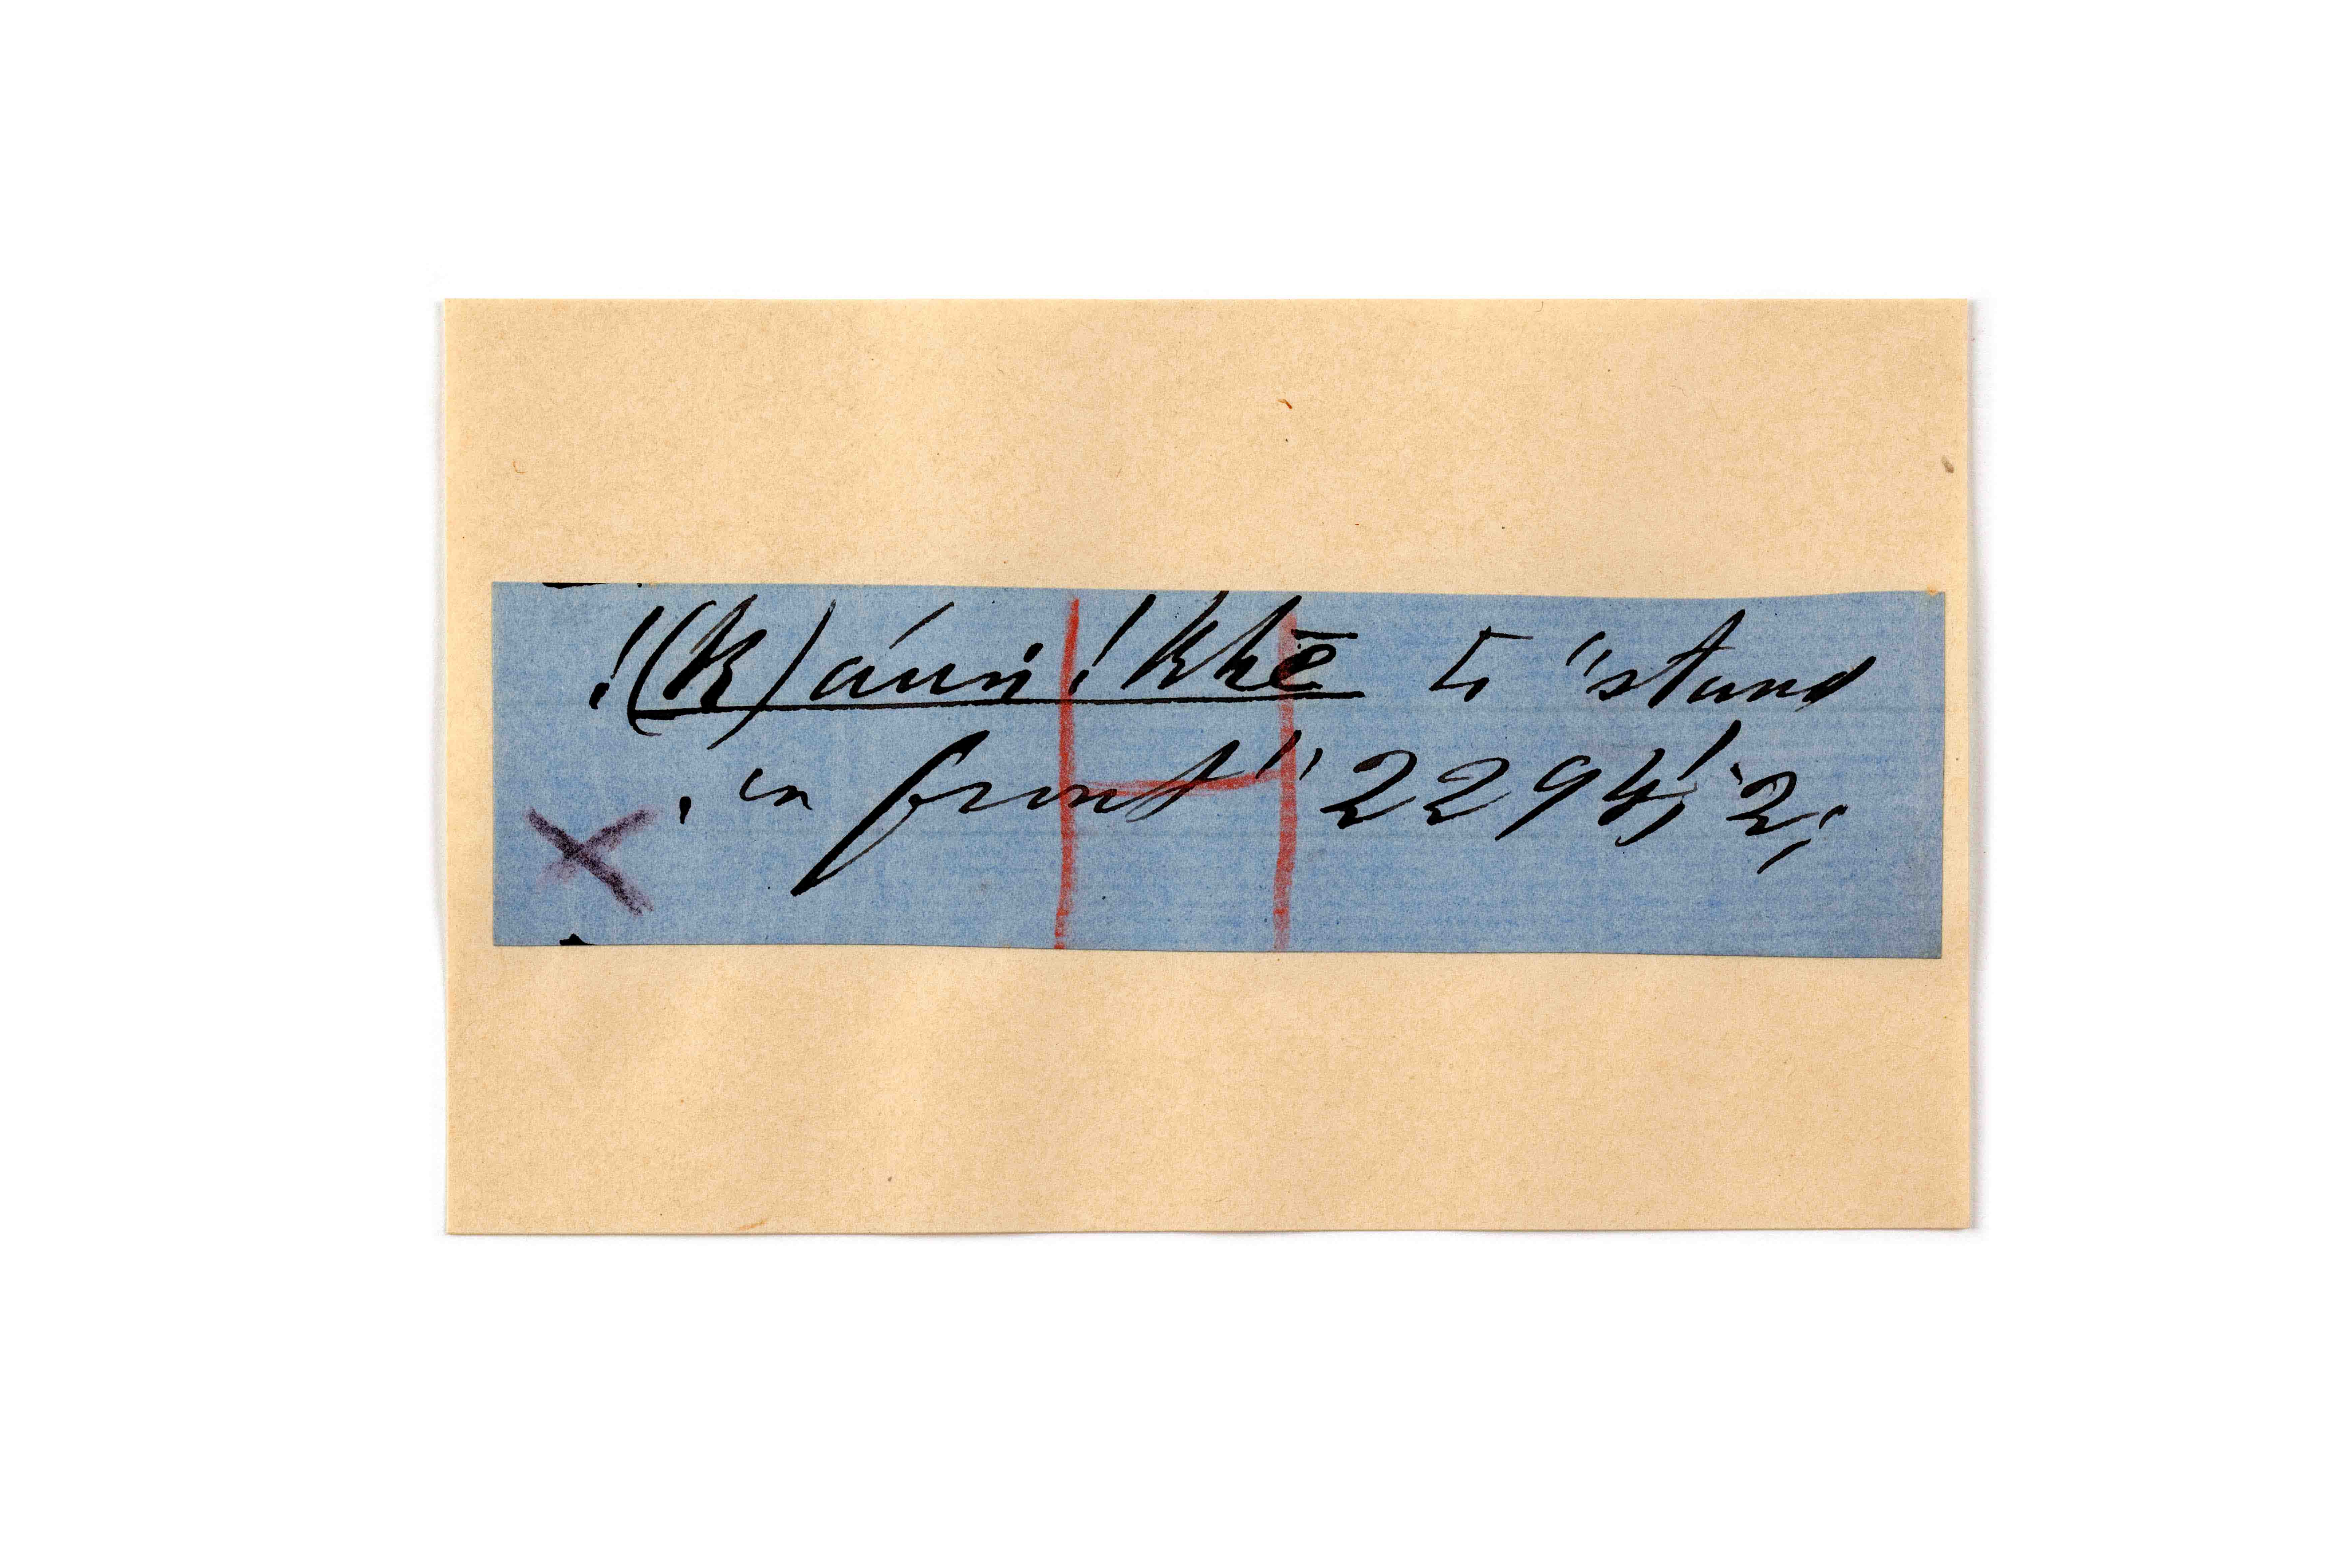 !(k)áuṅ !khē to "stand
in front" 2294,' 2;
H
X